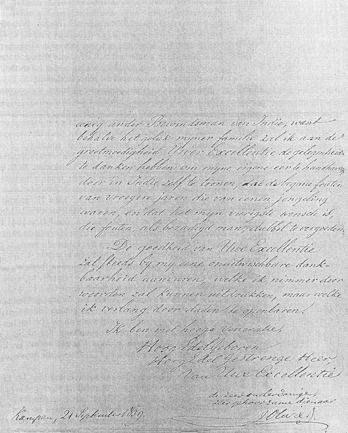 eenig ander Bewindsman van Indië, want
behalve het geluk mijner familie zal ik aan de
grootmoedigheid Uwer Excellentie de gelegenheid
te danken hebben om mijne eigene eer te handhaven
door in Indië zelf te toonen, dat de begane fouten
van vroegere jaren die van eenen jongeling
waren, en dat het mijn vurigste wensch is,
die fouten, als bezadigd man, dubbel te vergoeden.
De goedheid van Uwe Excellentie
zal steeds bij mij eene onuitwischbare dank-
baarheid aankweeken, welke ik nimmer door
woorden zal kunnen uitdrukken, maar welke
ik verlang door daden te openbaren.
Ik ben met hooge veneratie,
Hoog Edelgeboren
Hoog Edel Gestrenge Heer
Van Uwe Excellentie
de zeer onderdanige
zeer gehoorzame dienaar
Kampen, 21 September